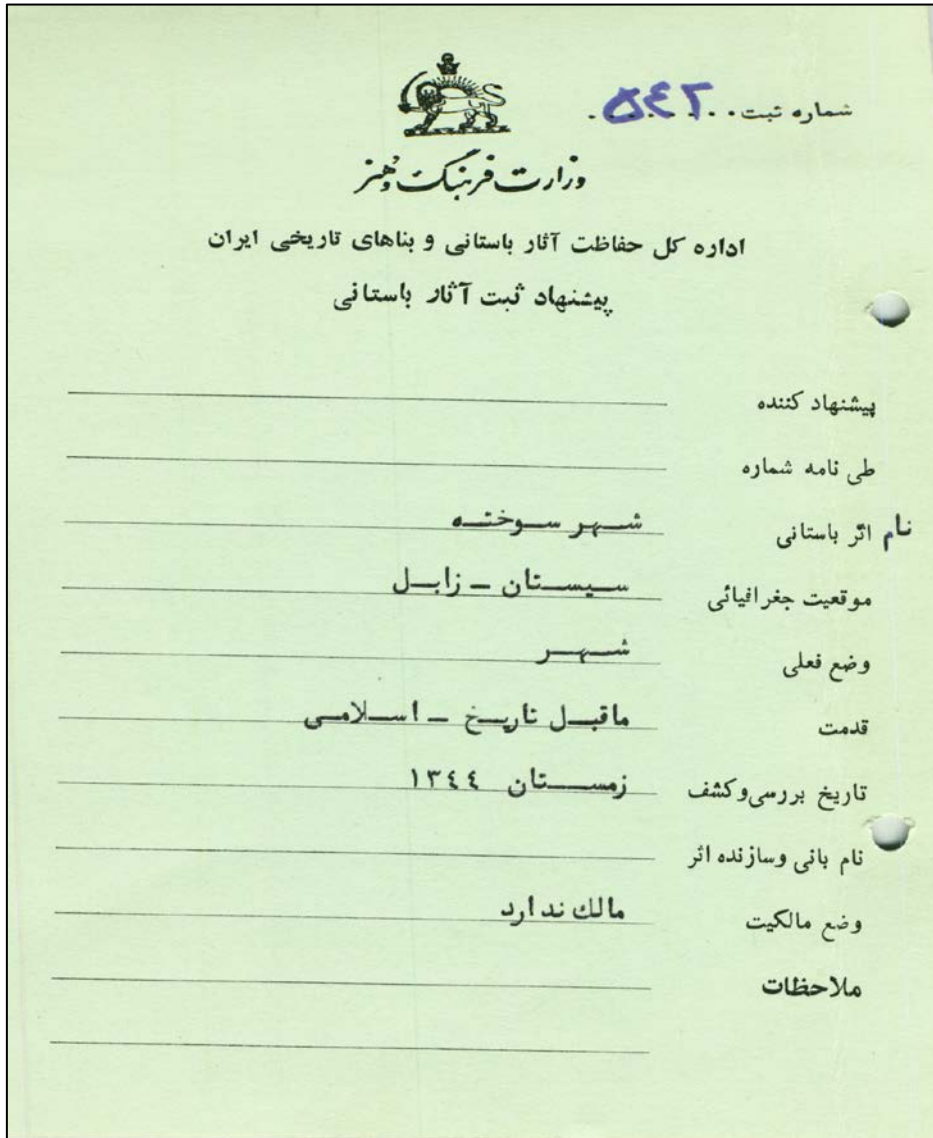 شماره ثبت . . ۵٤۲ . .
وزارت فرهنگ و هنر
اداره کل حفاظت آثار باستانی و بناهای تاریخی ایران
پیشنهاد ثبت آثار باستانی
پیشنهاد کننده
طی نامه شماره
نام اثر باستانی شهر سوخته
موقعیت جغرافیائی سیستان - زابل
وضع فعلی شهر
قدمت ماقبل تاریخ - اسلامی
تاریخ بررسی وکشف زمستان ۱۳٤٤
نام بانی وسازنده اثر
وضع مالکیت مالك ندارد
ملاحظات